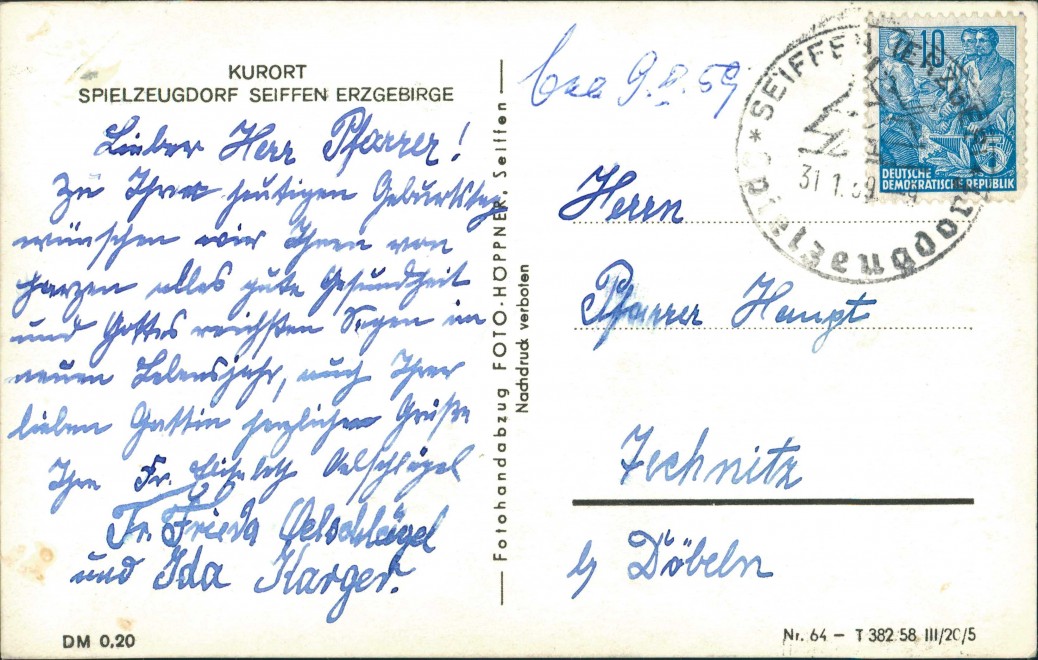 KURORT
SPIELZEUGDORF SEIFFEN ERZGEBIRGE
Lieber Herr Pfarrer!
Zu Ihrem heutigen Geburtstag
wünschen wir Ihnen von
Herzen alles gute Gesundheit
und Gottes reichsten Segen im
neuen Lebensjahr, auch Ihrer
lieben Gattin herzlichen Grüße
Ihre Fr. Elisabeth Oelschlägel
Fr. Frieda Oelschlägel
und Ida Karger.
DM 0,20
Fotohandabzug FOTO-HÖPPNER, Seiffen
Nachdruck verboten
9.2.59
SEIFFEN (ERZGEB)
Spielzeugdorf
31.1.59
10
DEUTSCHE
DEMOKRATISCHE REPUBLIK
Herrn
Pfarrer Haupt
Zschnitz
b/ Döbeln
Nr. 64 – T 382 58 III/20/5